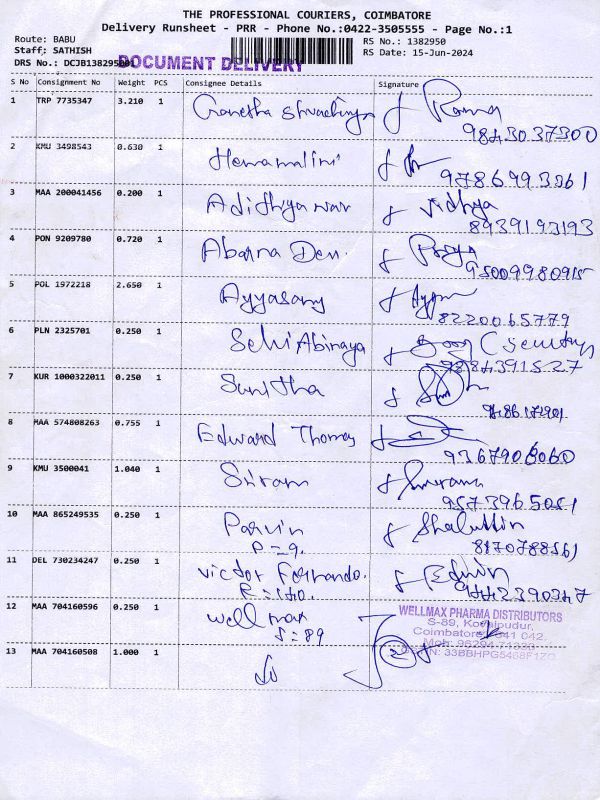 THE PROFESSIONAL COURIERS, COIMBATORE
Delivery Runsheet - PRR - Phone No.:0422-3505555 - Page No.:1
Route: BABU
RS No.: 1382950
Staff: SATHISH
RS Date: 15-Jun-2024
DRS No.: DCJB1382950
DOCUMENT DELIVERY
S No Consignment No Weight PCS Consignee Details Signature
1 TRP 7735347 3.210 1 Rama
9843037300
2 KMU 3498543 0.630 1 Hemamalini
9786993361
3 MAA 200041456 0.200 1 Adithyawar Vidhya
8939193193
4 PON 9209780 0.720 1 Abarna Devi Priya
95009980915
5 POL 1972218 2.650 1 Ayyasamy
8220065779
6 PLN 2325701 0.250 1 Selvi Abinaya
9884391527
7 KUR 1000322011 0.250 1 Sunitha
8 MAA 574808263 0.755 1 Edward Thomas
9367906060
9 KMU 3500041 1.040 1 Sriram
9573965051
10 MAA 865249535 0.250 1 Parvin
P=9.
8170788561
11 DEL 730234247 0.250 1 Victor Fernando. Edwin
R=140.
9442390347
12 MAA 704160596 0.250 1 well max
S=89
WELLMAX PHARMA DISTRIBUTORS
S-89, Kovaipudur,
Coimbatore - 641 042.
13 MAA 704160508 1.000 1 Do
2